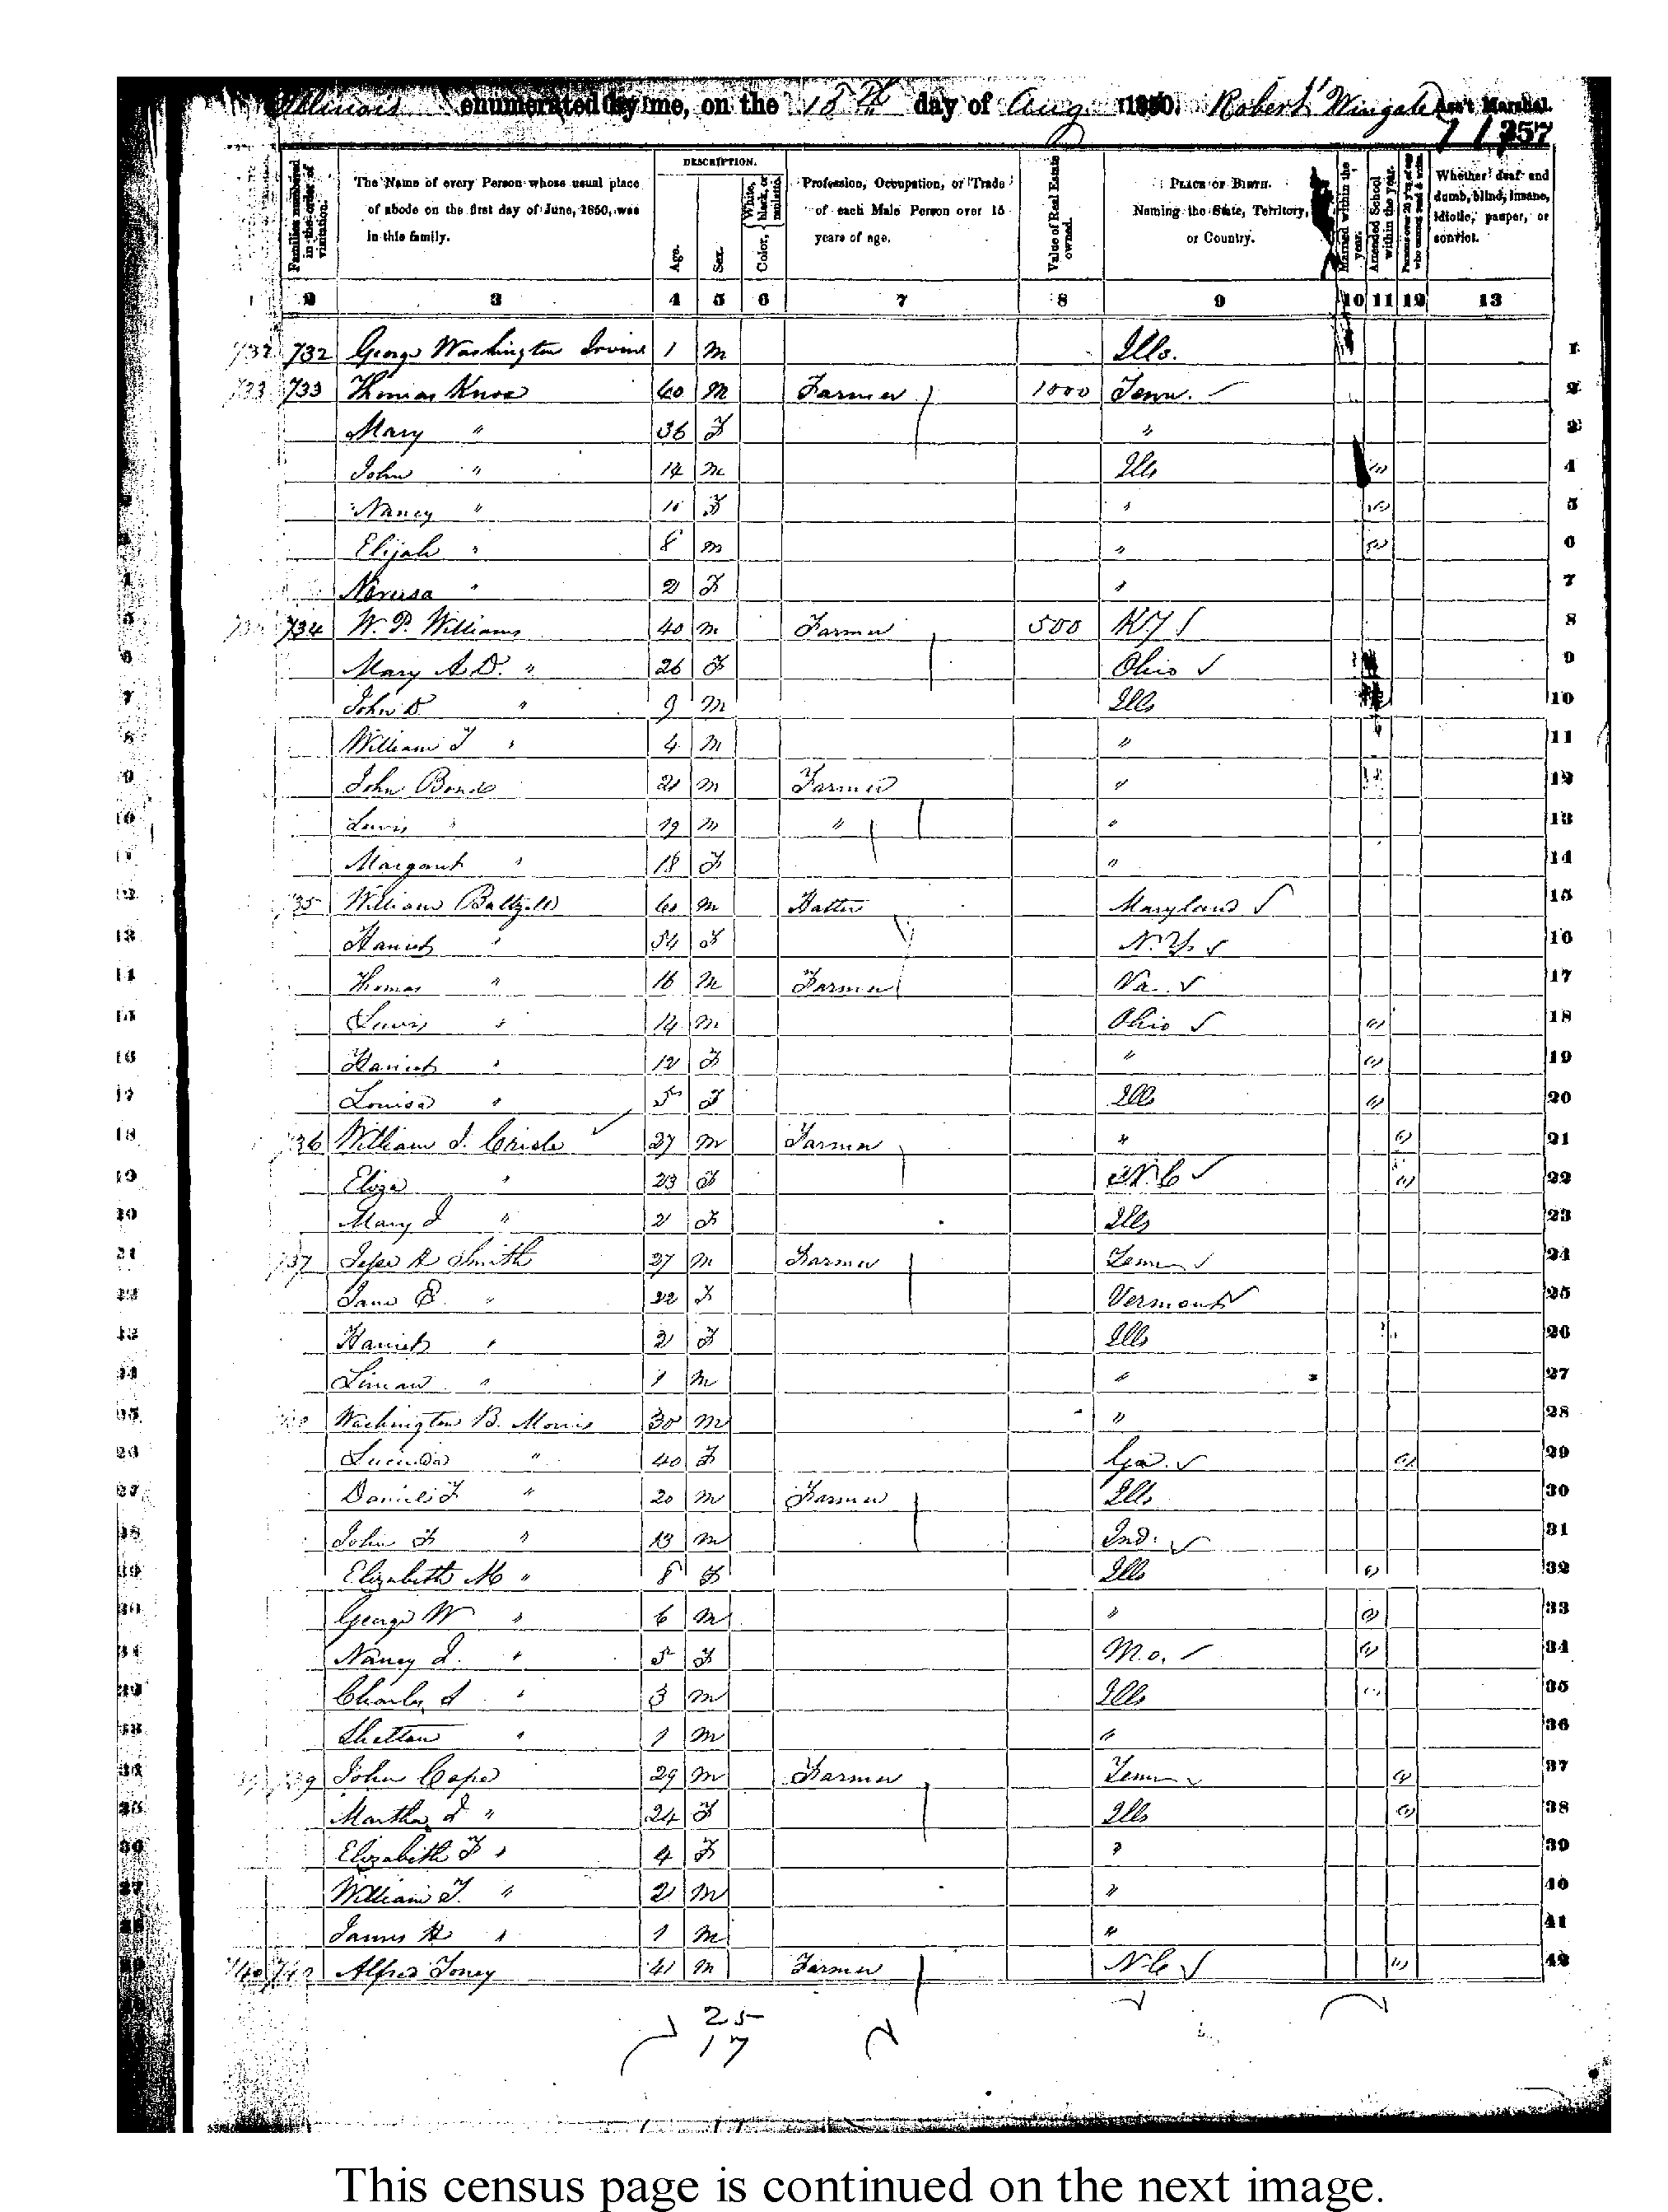 Illinois enumerated by me, on the 15th day of Aug 1850. Robert Wingate Ass't Marshal.
257
Families numbered in the order of visitation.
The Name of every Person whose usual place of abode on the first day of June, 1850, was in this family.
DESCRIPTION.
Age.
Sex.
Color, White, black, or mulatto.
Profession, Occupation, or Trade of each Male Person over 15 years of age.
Value of Real Estate owned.
PLACE OF BIRTH. Naming the State, Territory, or Country.
Married within the year.
Attended School within the year.
Persons over 20 y'rs of age who cannot read & write.
Whether deaf and dumb, blind, insane, idiotic, pauper, or convict.
2 3 4 5 6 7 8 9 10 11 12 13
732 732 George Washington Irvine 1 M Ills. 1
733 733 Thomas Knox 40 M Farmer 1000 Tenn. 2
Mary " 36 F " 3
John " 14 M Ills 4
Nancy " F " 5
Elijah " 8 M " 6
" 2 F " 7
734 W. P. Williams 40 M Farmer 500 KY 8
Mary A D. " 26 F Ohio 9
John D " 9 M Ills 10
William T " 4 M " 11
John 21 M Farmer " 12
Lewis " 19 M " " 13
Margaret " 18 F " 14
35 William Baltzell M Hatter Maryland 15
Harriet " 54 F N.Y. 16
Thomas " 16 M Farmer Va. 17
Lewis " 14 M Ohio 18
Harriet " 12 F " 19
Louisa " 5 F Ills 20
36 William J. 27 M Farmer " 21
Eliza " 23 F N.C 22
Mary J " 2 F Ills 23
737 Jesse R Smith 27 M Farmer Tenn 24
Jane E. " 22 F Vermont 25
Harriet " 2 F Ills 26
" 1 M " 27
Washington B. Morris 30 M " 28
Lucinda " 40 F Ga. 29
Daniel F " 20 M Farmer Ills 30
John F " 13 M Ind. 31
Elizabeth M " 8 F Ills 32
George W " 6 M " 33
Nancy J. " 5 F Mo. 34
Charles " 3 M Ills 35
Shelton " 1 M " 36
39 John Cape 29 M Farmer Tenn 37
Martha J " 24 F Ills 38
Elizabeth F " 4 F " 39
William T. " 2 M " 40
James H " 1 M " 41
740 740 Alfred Toney 41 M Farmer N.C 42
25
17
This census page is continued on the next image.